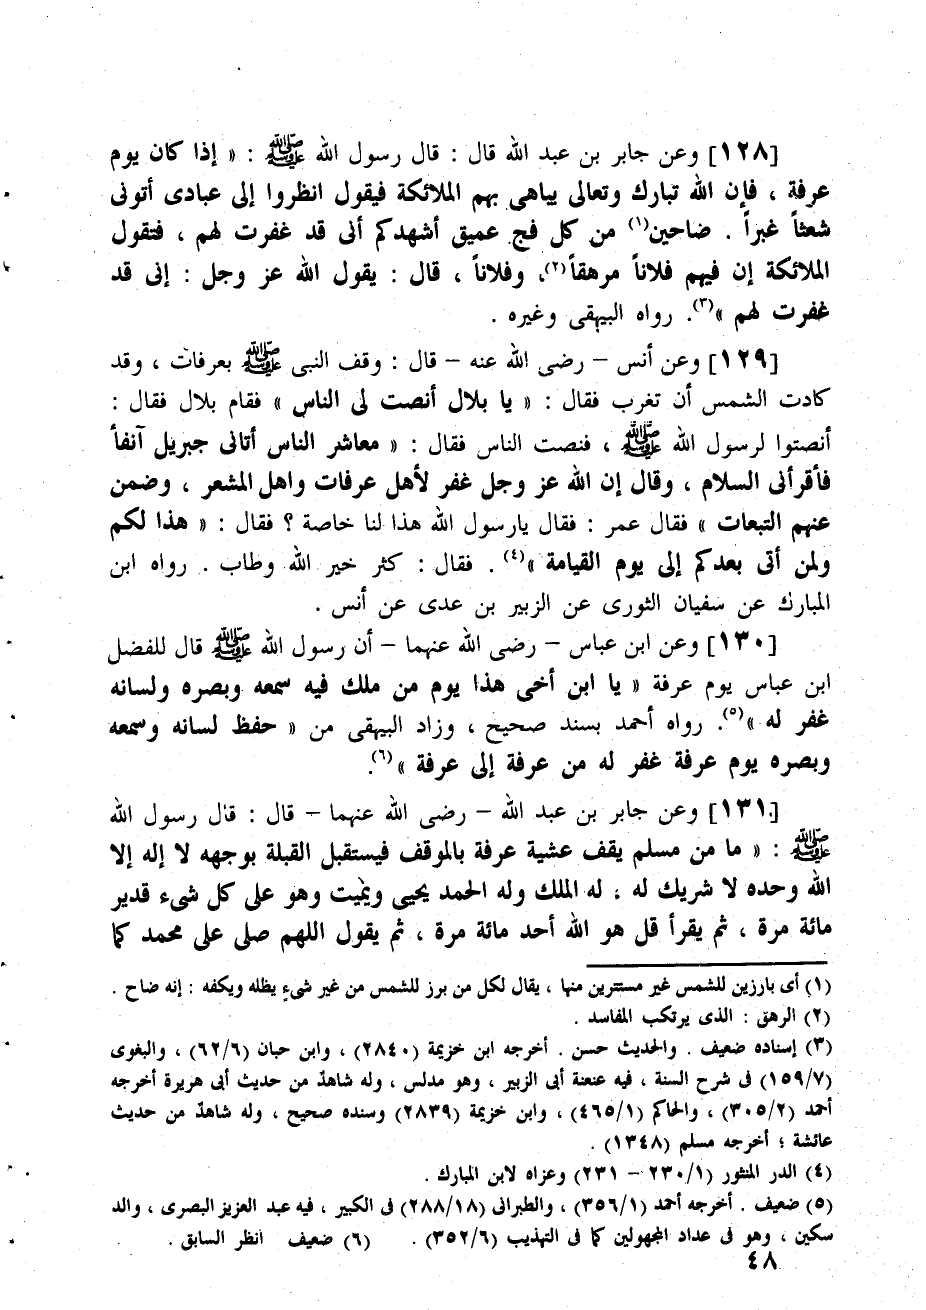 [١٢٨] وعن جابر بن عبد الله قال : قال رسول الله ﷺ : « إذا كان يوم
عرفة ، فإن الله تبارك وتعالى يباهى بهم الملائكة فيقول انظروا إلى عبادى أتونى
شعثاً غبراً . ضاحين(١) من كل فج عميق أشهدكم أنى قد غفرت لهم ، فتقول
الملائكة إن فيهم فلاناً مرهقاً(٢)، وفلاناً ، قال : يقول الله عز وجل : إنى قد
غفرت لهم »(٣). رواه البيهقى وغيره .
[١٢٩] وعن أنس – رضى الله عنه – قال : وقف النبى ﷺ بعرفات ، وقد
كادت الشمس أن تغرب فقال : « يا بلال أنصت لى الناس » فقام بلال فقال :
أنصتوا لرسول الله ﷺ ، فنصت الناس فقال : « معاشر الناس أتانى جبريل آنفاً
فأقرأنى السلام ، وقال إن الله عز وجل غفر لأهل عرفات واهل المشعر ، وضمن
عنهم التبعات » فقال عمر : فقال يارسول الله هذا لنا خاصة ؟ فقال : « هذا لكم
ولمن أتى بعدكم إلى يوم القيامة »(٤) . فقال : كثر خير الله وطاب . رواه ابن
المبارك عن سفيان الثورى عن الزبير بن عدى عن أنس .
[١٣٠] وعن ابن عباس – رضى الله عنهما – أن رسول الله ﷺ قال للفضل
ابن عباس يوم عرفة « يا ابن أخى هذا يوم من ملك فيه سمعه وبصره ولسانه
غفر له »(٥). رواه أحمد بسند صحيح ، وزاد البيهقى من « حفظ لسانه وسمعه
وبصره يوم عرفة غفر له من عرفة إلى عرفة »(٦).
[١٣١] وعن جابر بن عبد الله – رضى الله عنهما – قال : قال رسول الله
ﷺ : « ما من مسلم يقف عشية عرفة بالموقف فيستقبل القبلة بوجهه لا إله إلا
الله وحده لا شريك له ؛ له الملك وله الحمد يحيى ويميت وهو على كل شىء قدير
مائة مرة ، ثم يقرأ قل هو الله أحد مائة مرة ، ثم يقول اللهم صلى على محمد كما
(١) أى بارزين للشمس غير مستترين منها ، يقال لكل من برز للشمس من غير شىءٍ يظله ويكفه : إنه ضاح .
(٢) الرهق : الذى يرتكب المفاسد .
(٣) إسناده ضعيف . والحديث حسن . أخرجه ابن خزيمة (٢٨٤٠) ، وابن حبان (٦٢/٦) ، والبغوى
(١٥٩/٧) فى شرح السنة ، فيه عنعنة أبى الزبير ، وهو مدلس ، وله شاهدٌ من حديث أبى هريرة أخرجه
أحمد (٣٠٥/٢) ، والحاكم (٤٦٥/١) ، وابن خزيمة (٢٨٣٩) وسنده صحيح ، وله شاهدٌ من حديث
عائشة ؛ أخرجه مسلم (١٣٤٨) .
(٤) الدر المنثور (٢٣٠/١ – ٢٣١) وعزاه لابن المبارك .
(٥) ضعيف . أخرجه أحمد (٣٥٦/١) ، والطبرانى (٢٨٨/١٨) فى الكبير ، فيه عبد العزيز البصرى ، والد
سكين ، وهو فى عداد المجهولين كما فى التهذيب (٣٥٢/٦) . (٦) ضعيف انظر السابق .
٤٨